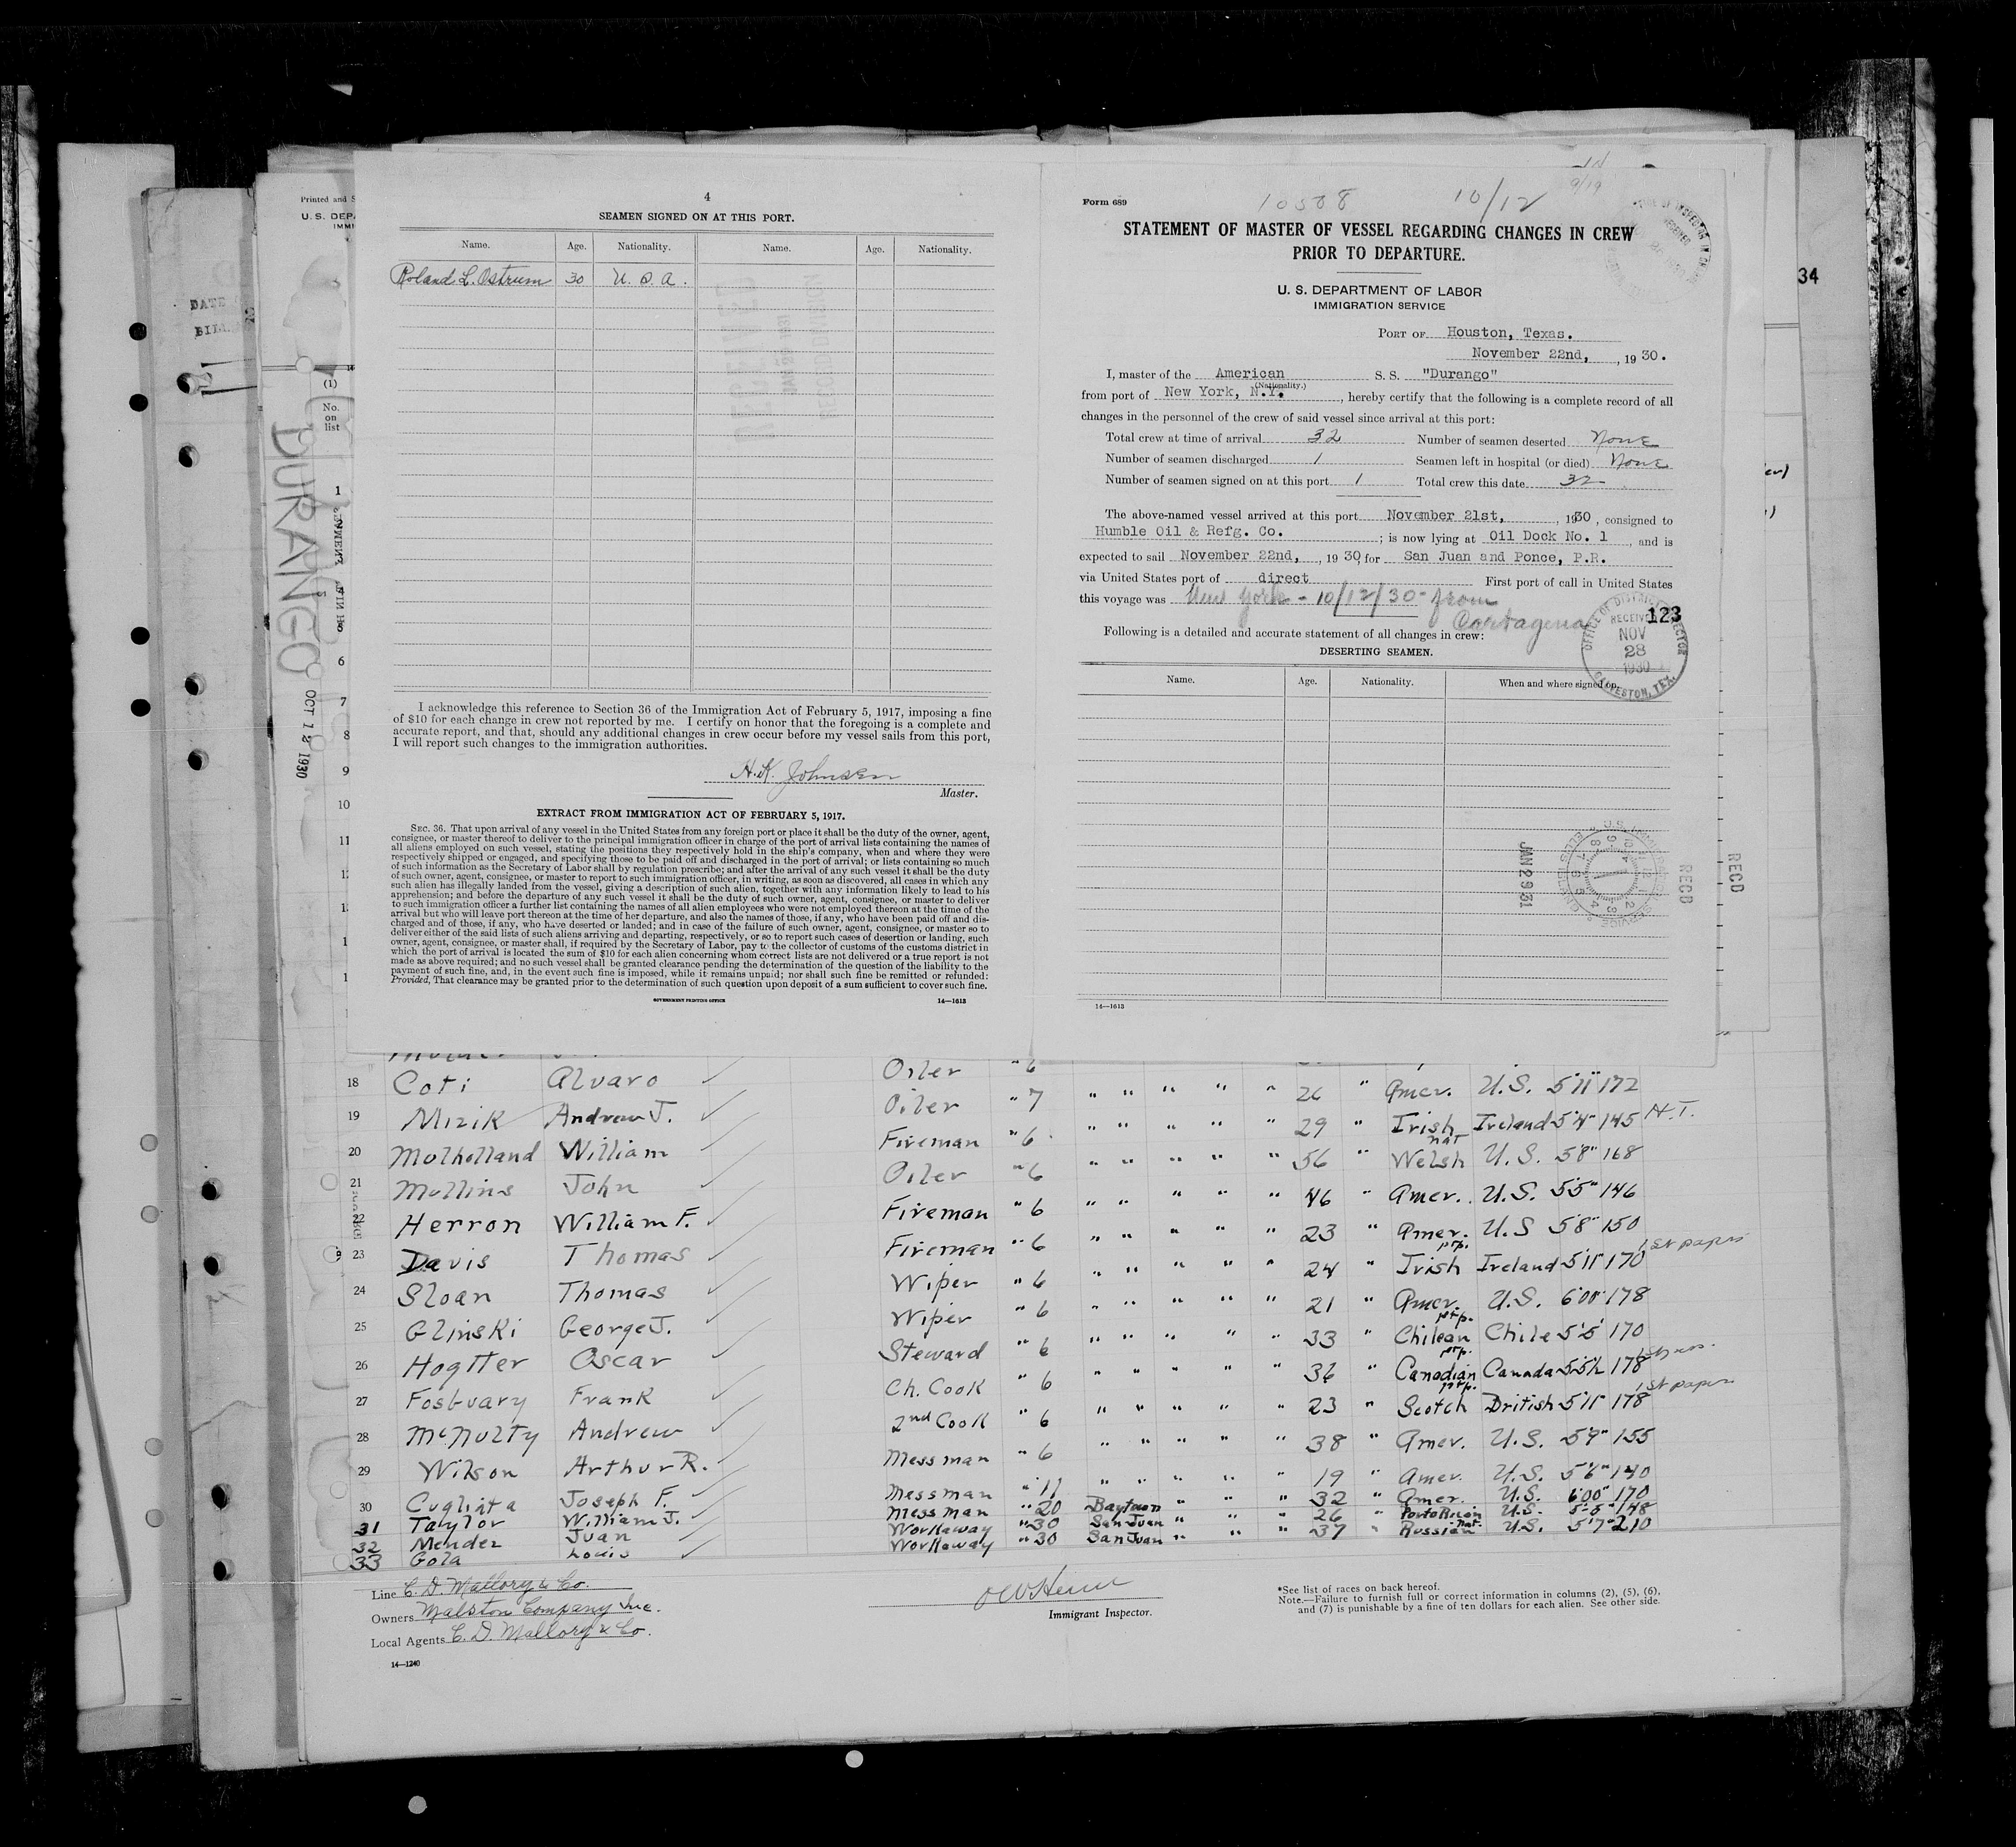 4
SEAMEN SIGNED ON AT THIS PORT.
Name. Age. Nationality. Name. Age. Nationality.
Roland L. Ostrum 30 U. S. A.
I acknowledge this reference to Section 36 of the Immigration Act of February 5, 1917, imposing a fine
of $10 for each change in crew not reported by me. I certify on honor that the foregoing is a complete and
accurate report, and that, should any additional changes in crew occur before my vessel sails from this port,
I will report such changes to the immigration authorities.
H.K. Johnsen
Master.
EXTRACT FROM IMMIGRATION ACT OF FEBRUARY 5, 1917.
SEC. 36. That upon arrival of any vessel in the United States from any foreign port or place it shall be the duty of the owner, agent,
consignee, or master thereof to deliver to the principal immigration officer in charge of the port of arrival lists containing the names of
all aliens employed on such vessel, stating the positions they respectively hold in the ship's company, when and where they were
respectively shipped or engaged, and specifying those to be paid off and discharged in the port of arrival; or lists containing so much
of such information as the Secretary of Labor shall by regulation prescribe; and after the arrival of any such vessel it shall be the duty
of such owner, agent, consignee, or master to report to such immigration officer, in writing, as soon as discovered, all cases in which any
such alien has illegally landed from the vessel, giving a description of such alien, together with any information likely to lead to his
apprehension; and before the departure of any such vessel it shall be the duty of such owner, agent, consignee, or master to deliver
to such immigration officer a further list containing the names of all alien employees who were not employed thereon at the time of the
arrival but who will leave port thereon at the time of her departure, and also the names of those, if any, who have been paid off and dis-
charged and of those, if any, who have deserted or landed; and in case of the failure of such owner, agent, consignee, or master so to
deliver either of the said lists of such aliens arriving and departing, respectively, or so to report such cases of desertion or landing, such
owner, agent, consignee, or master shall, if required by the Secretary of Labor, pay to the collector of customs of the customs district in
which the port of arrival is located the sum of $10 for each alien concerning whom correct lists are not delivered or a true report is not
made as above required; and no such vessel shall be granted clearance pending the determination of the question of the liability to the
payment of such fine, and, in the event such fine is imposed, while it remains unpaid; nor shall such fine be remitted or refunded:
Provided, That clearance may be granted prior to the determination of such question upon deposit of a sum sufficient to cover such fine.
GOVERNMENT PRINTING OFFICE 14—1613
Form 689 10588 10/12
STATEMENT OF MASTER OF VESSEL REGARDING CHANGES IN CREW
PRIOR TO DEPARTURE.
U. S. DEPARTMENT OF LABOR
IMMIGRATION SERVICE
PORT OF Houston, Texas.
November 22nd, , 19 30.
I, master of the American S. S. "Durango"
(Nationality.)
from port of New York, N.Y. , hereby certify that the following is a complete record of all
changes in the personnel of the crew of said vessel since arrival at this port:
Total crew at time of arrival 32 Number of seamen deserted None
Number of seamen discharged 1 Seamen left in hospital (or died) None
Number of seamen signed on at this port 1 Total crew this date 32
The above-named vessel arrived at this port November 21st, , 1930 , consigned to
Humble Oil & Refg. Co. ; is now lying at Oil Dock No. 1 , and is
expected to sail November 22nd, , 19 30, for San Juan and Ponce, P.R.
via United States port of direct First port of call in United States
this voyage was New York - 10/12/30 - from
Cartagena
Following is a detailed and accurate statement of all changes in crew:
DESERTING SEAMEN.
Name. Age. Nationality. When and where signed on.
123
OFFICE OF DISTRICT DIRECTOR
RECEIVED
NOV
28
1930
GALVESTON, TEX.
JAN 29 31
RECD
RECD
14—1613
34
Printed and S
U. S. DEPA
IMMI
(1)
No.
on
list
DURANGO
OCT 12 1930
DATE
BILL
1
6
7
8
9
10
11
18 Coti Alvaro Oiler " 6
19 Mizik Andrew J. Oiler " 7 " " " " " 26 " Amer. U.S. 5'11" 172
20 Mulholland William Fireman " 6 " " " " " 29 " Irish Ireland 5'4" 145 N.T.
21 Mullins John Oiler " 6 " " " " " 56 " Welsh nat U.S. 5'8" 168
22 Herron William F. Fireman " 6 " " " " " 46 " Amer. U.S. 5'5" 146
23 Davis Thomas Fireman " 6 " " " " " 23 " Amer. U.S 5'8" 150
24 Sloan Thomas Wiper " 6 " " " " " 24 " Irish Ireland 5'11" 170 1st papers
25 Glinski George J. Wiper " 6 " " " " " 21 " Amer. U.S. 6'00" 178
26 Hogtter Oscar Steward " 6 " " " " " 33 " Chilean Chile 5'5" 170
27 Fosbuary Frank Ch. Cook " 6 " " " " " 36 " Canadian Canada 5'5½ 178
28 McNulty Andrew 2nd Cook " 6 " " " " " 23 " Scotch British 5'11" 178 1st papers
29 Wilson Arthur R. Messman " 6 " " " " " 38 " Amer. U.S. 5'9" 155
30 Cugliata Joseph F. Messman " 11 " " " " " 19 " Amer. U.S. 5'6" 140
31 Taylor William J. Messman " 20 Baytown " " " 32 " Amer. U.S. 6'00" 170
32 Mendez Juan Workaway " 30 San Juan " " " 26 " Porto Rican U.S. 5'5" 148
33 Gola Louis Workaway " 30 San Juan " " " 37 " Russian nat. U.S. 5'7" 210
Line C. D. Mallory & Co.
Owners Malston Company Inc.
Local Agents C. D. Mallory & Co.
14—1240
Immigrant Inspector.
*See list of races on back hereof.
Note.—Failure to furnish full or correct information in columns (2), (5), (6),
and (7) is punishable by a fine of ten dollars for each alien. See other side.